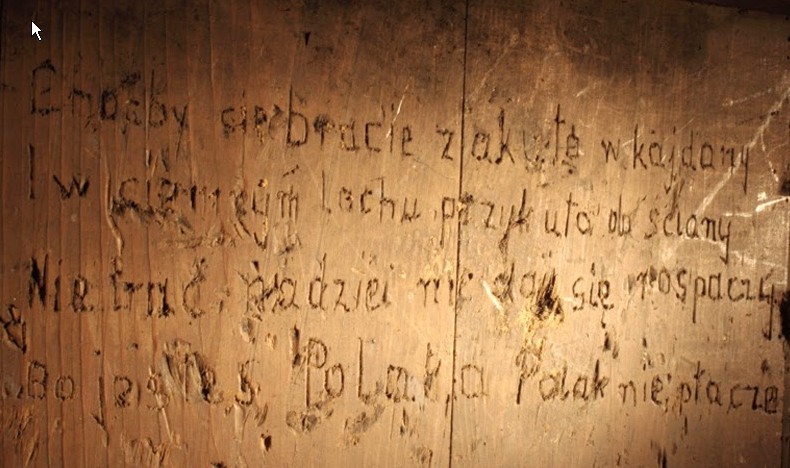 Choćby cię bracie zakuto w kajdany
I w ciemnym lochu przykuto do ściany
Nie trać nadziei nie daj się rospaczy
Bo jesteś Polak a Polak nie płacze